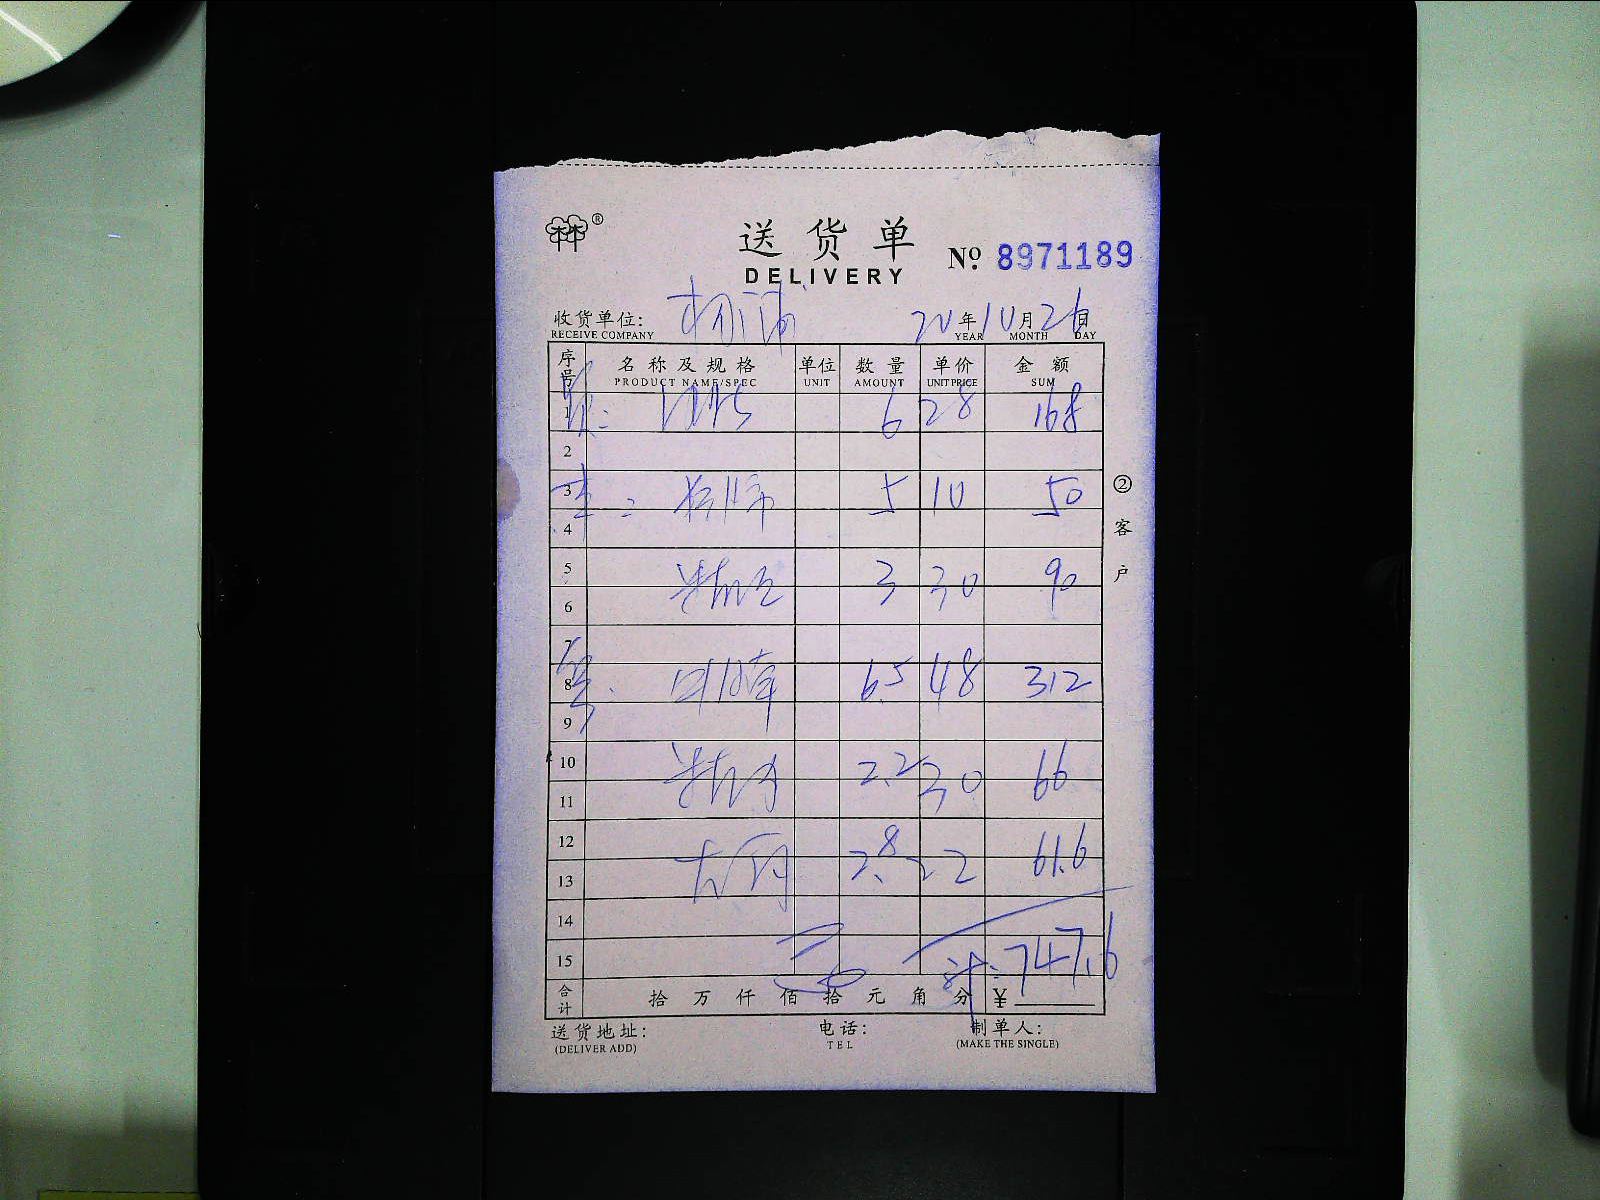 ®
送货单
DELIVERY
№ 8971189
收货单位: 20年10月26日
RECEIVE COMPANY YEAR MONTH DAY
序号 名称及规格 单位 数量 单价 金额
PRODUCT NAME/SPEC UNIT AMOUNT UNIT PRICE SUM
1 6 28 168
2
3 5 10 50
4
5 3 30 90
6
7
8 6.5 48 312
9
10 2.2 30 66
11
12 2.8 22 61.6
13
14
15 计: 747.6
合计 拾 万 仟 佰 拾 元 角 分 ¥
② 客户
送货地址: 电话: 制单人:
(DELIVER ADD) TEL (MAKE THE SINGLE)